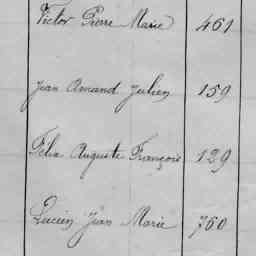 Victor Pierre Marie 461
Jean Amand Julien 159
Félix Auguste François 129
Lucien Jean Marie 760